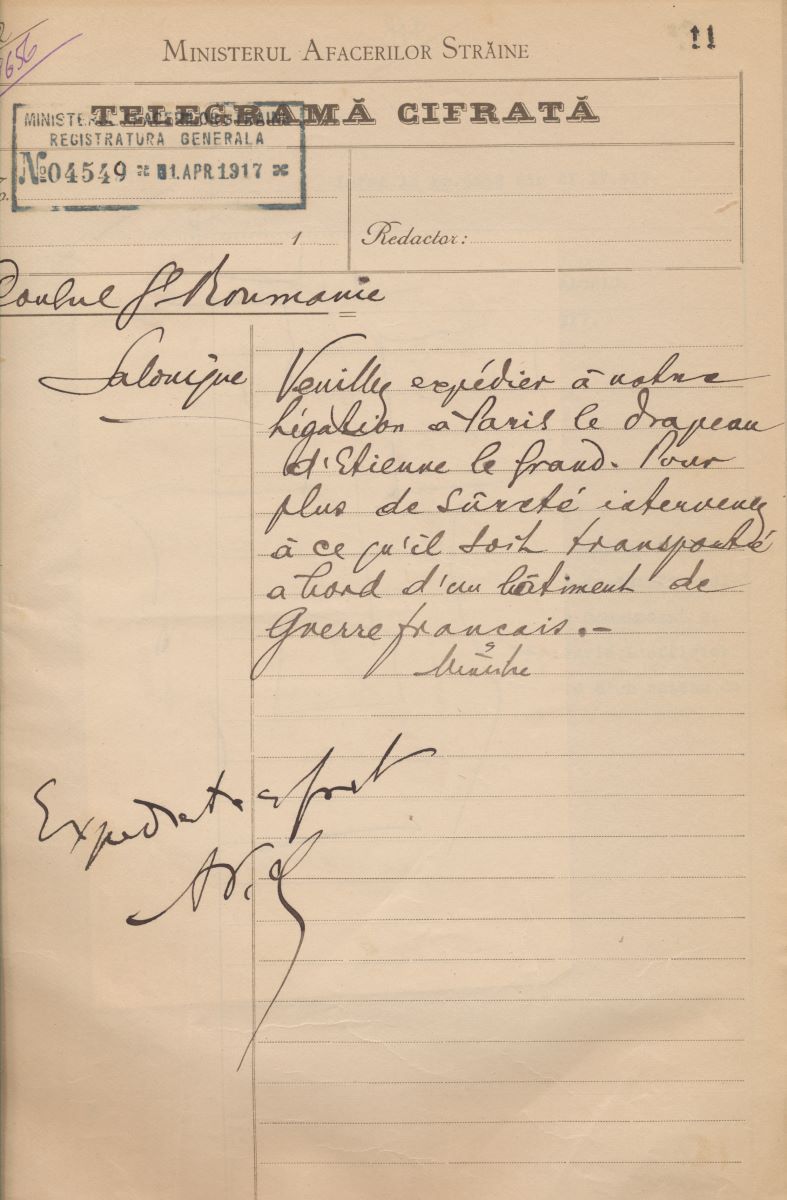 11
656
MINISTERUL AFACERILOR STRĂINE
TELEGRAMĂ CIFRATĂ
REGISTRATURA GENERALA
No 04549 * 01.APR.1917 *
1
Redactor:
Consul Gl Roumanie
Salonique
Veuillez expédier à notre
Légation à Paris le drapeau
d'Etienne le Grand. Pour
plus de sûreté intervenez
à ce qu'il soit transporté
a bord d'un bâtiment de
Guerre francais.–
Expediata a fost